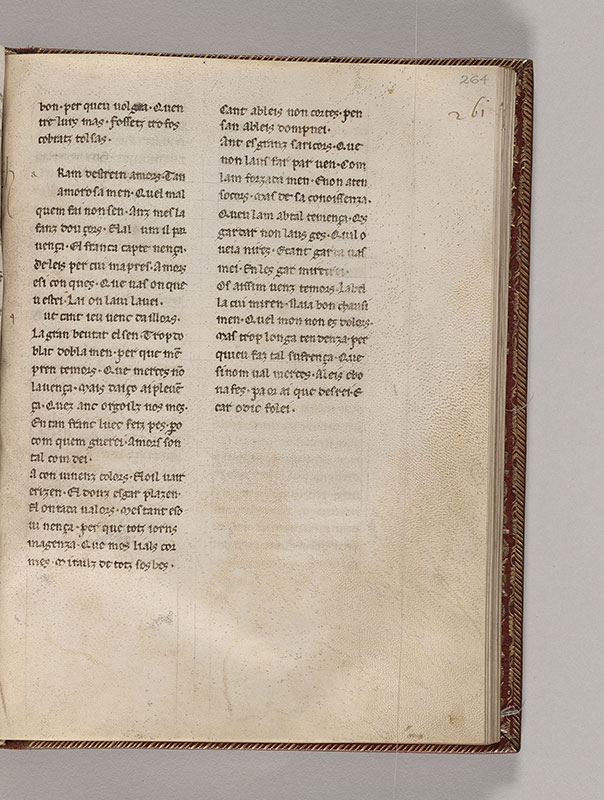 264
261
bon. per queu uolgra. Quen
tre luy mas. fossetz tro fos
cobratz tolsas.
Ram destrein amors. Tan
amorosa men. Quel mal
quem fai non sen. Anz mes la
fanz douçors. Elal um il par
uença. El franca capte nença.
de leis per cui ma pres. Amors
esi con ques. Que uas on que
u estei. Lai on laui lauei.
ue cant ieu uenc daillors.
La gran beutat el sen. Trop do
blat dobla men. per que mē
pren temors. Que merces no
la uença. Mais daiço ai pleuē
ça. Quez anc orgoilz nos mes.
En tan franc luec fetz pes. po
com quem guerei. Amors son
tal com dei.
A con uinenz colors. El oil uair
erizen. El douz esgar plazen.
El on rata ualors. Mes tant eso
ui nença. per que totz iorns
magenza. Que mos lials cor
mes. M i railz de totz ses bes.
Cant ableis non cortes. pen
san ableis dompnei.
Ant es granz sa ricors. Que
non laus far par uen. Com
lam forzada men. E non aten
socors. Mas de sa conoissenza.
Queu lam ab tal temença. Qes
gardar non laus ges. Qual o
ueia nirez. E cant gar la uas
mei. En les gar mirei.
Os aissim uenz temors. La bel
la cui miren. Naia bon chausi
men. Quel mon non es dolors.
Mas trop longa tendenza. per
quieu faz tal sufrença. Que
si nom ual merces. Aleis ebo
na fes. paor ai que desrei. E
car o dic folei.